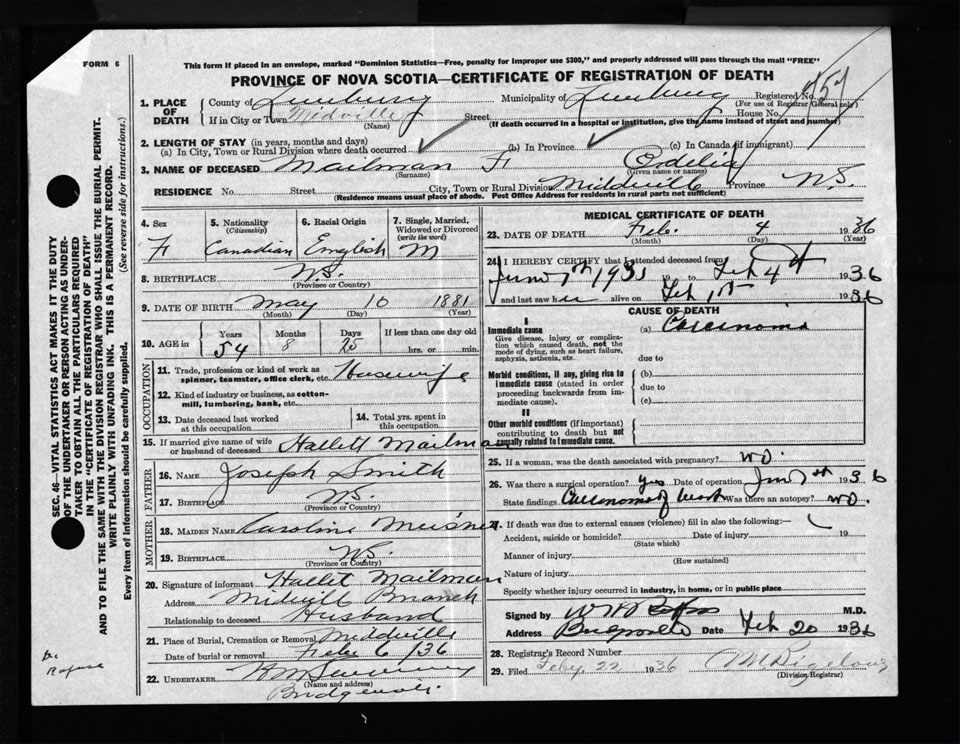 FORM 6
This form if in an envelope, marked "Dominion Statistics—Free, penalty for improper use $300," and properly addressed will pass through the mail "FREE"
PROVINCE OF NOVA SCOTIA—CERTIFICATE OF REGISTRATION OF DEATH
1. PLACE OF DEATH County of Lunenburg Municipality of Lunenburg Registered No. 
(For use of Registrar General only)
If in City or Town Midville Street House No.
(Name) (If death occurred in a hospital or institution, give the name instead of street and number)
2. LENGTH OF STAY (in years, months and days)
(a) In City, Town or Rural Division where death occurred (b) In Province (c) In Canada (if immigrant)
3. NAME OF DECEASED Mailman Ordelia
(Surname) (Given name or names)
RESIDENCE No. Street City, Town or Rural Division Midville Province N.S.
(Residence means usual place of abode. Post Office Address for residents in rural parts not sufficient)
4. Sex F
5. Nationality (Citizenship) Canadian
6. Racial Origin English
7. Single, Married, Widowed or Divorced (write the word) M
8. BIRTHPLACE N.S.
(Province or Country)
9. DATE OF BIRTH May 10 1881
(Month) (Day) (Year)
10. AGE in Years 54 Months 8 Days 25 If less than one day old hrs. or min.
OCCUPATION
11. Trade, profession or kind of work as spinner, teamster, office clerk, etc. Housewife
12. Kind of industry or business, as cotton-mill, lumbering, bank, etc.
13. Date deceased last worked at this occupation
14. Total yrs. spent in this occupation
15. If married give name of wife or husband of deceased Hallett Mailman
FATHER
16. NAME Joseph Smith
17. BIRTHPLACE N.S.
(Province or Country)
MOTHER
18. MAIDEN NAME Caroline Meisner
19. BIRTHPLACE N.S.
(Province or Country)
20. Signature of informant Hallet Mailman
Address Midvill Branch
Relationship to deceased Husband
21. Place of Burial, Cremation or Removal Midville
Date of burial or removal Feb 6 /36
22. UNDERTAKER
(Name and address)
MEDICAL CERTIFICATE OF DEATH
23. DATE OF DEATH Feb. 4 1936
(Month) (Day) (Year)
24. I HEREBY CERTIFY that I attended deceased from
to Feb 4th 1936
and last saw her alive on Feb 1st 1936
CAUSE OF DEATH
I
Immediate cause (a) Carcinoma
Give disease, injury or complication which caused death, not the mode of dying, such as heart failure, asphyxia, asthenia, etc.
due to
Morbid conditions, if any, giving rise to immediate cause (stated in order proceeding backwards from immediate cause).
(b)
due to
(c)
II
Other morbid conditions (if important) contributing to death but not causally related to immediate cause.
25. If a woman, was the death associated with pregnancy? no.
26. Was there a surgical operation? yes Date of operation 1936
State findings Carcinoma of Was there an autopsy? no.
27. If death was due to external causes (violence) fill in also the following:—
Accident, suicide or homicide? Date of injury 19
(State which)
Manner of injury
(How sustained)
Nature of injury
Specify whether injury occurred in industry, in home, or in public place
Signed by M.D.
Address Date Feb 20 1936
28. Registrar's Record Number
29. Filed Feby. 22 1936
(Division Registrar)
SEC. 46—VITAL STATISTICS ACT MAKES IT THE DUTY
OF THE UNDERTAKER OR PERSON ACTING AS UNDER-
TAKER TO OBTAIN ALL THE PARTICULARS REQUIRED
IN THE "CERTIFICATE OF REGISTRATION OF DEATH"
AND TO FILE THE SAME WITH THE DIVISION REGISTRAR WHO SHALL ISSUE THE BURIAL PERMIT.
WRITE PLAINLY WITH UNFADING INK. THIS IS A PERMANENT RECORD.
Every item of information should be carefully supplied. (See reverse side for instructions.)